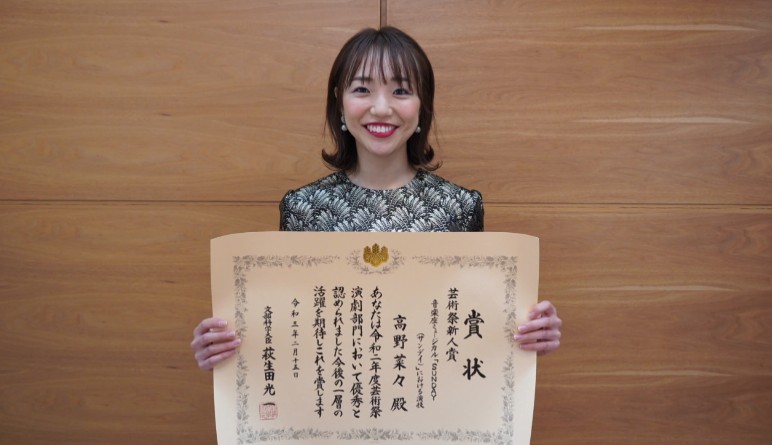 賞状
芸術祭新人賞
音楽座ミュージカル「SUNDAY
(サンデイ)」における演技
高野菜々殿
あなたは令和二年度芸術祭
演劇部門において優秀と
認められました今後の一層の
活躍を期待しこれを賞します
令和三年二月十五日
文部科学大臣 萩生田光一